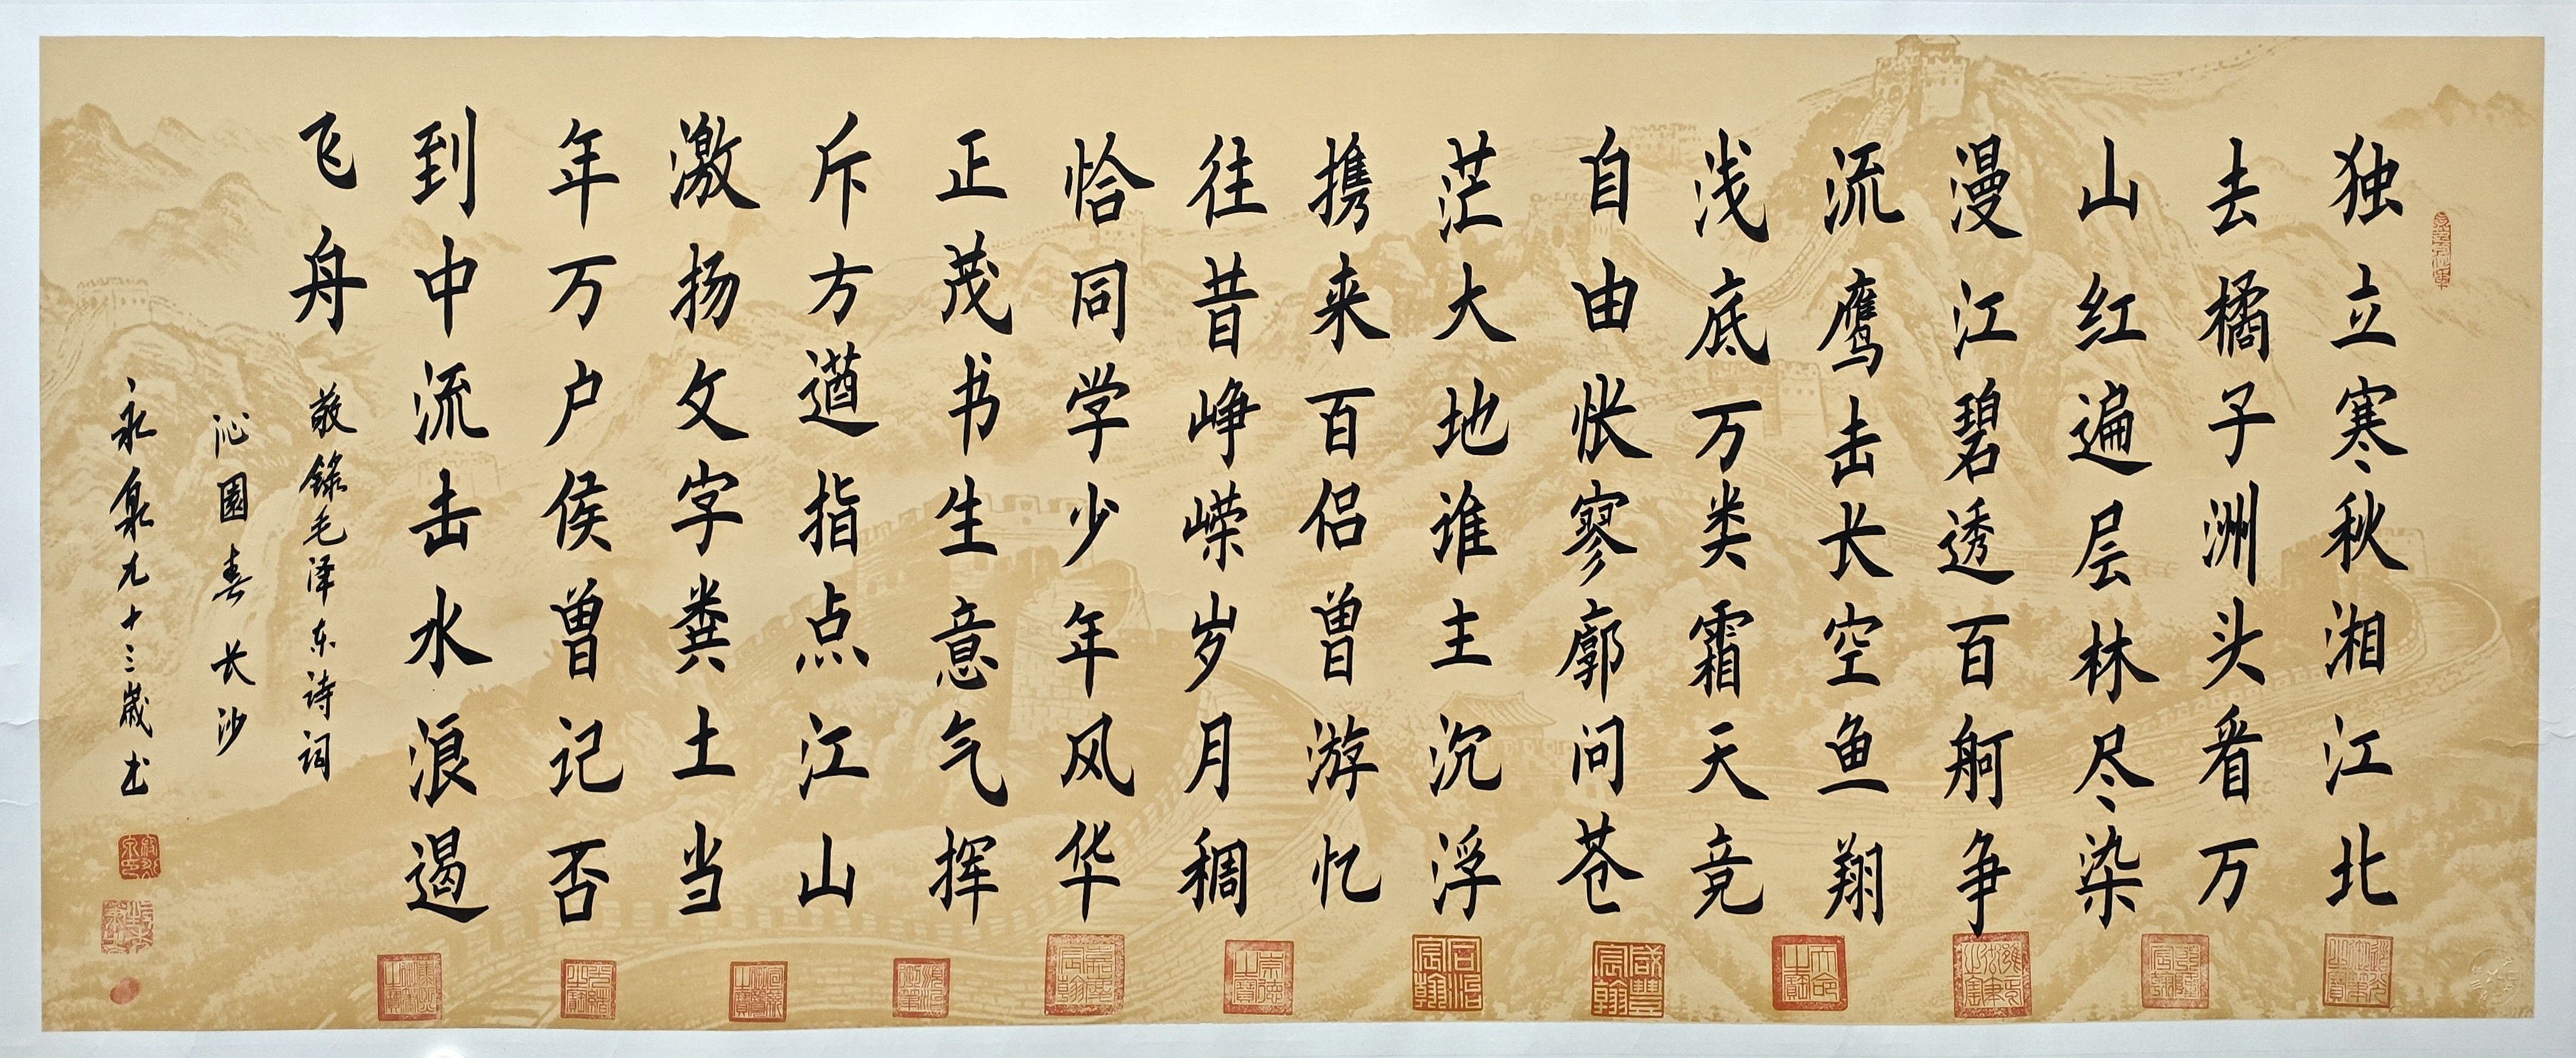 独立寒秋湘江北
去橘子洲头看万
山红遍层林尽染
漫江碧透百舸争
流鹰击长空鱼翔
浅底万类霜天竞
自由怅寥廓问苍
茫大地谁主沉浮
携来百侣曾游忆
往昔峥嵘岁月稠
恰同学少年风华
正茂书生意气挥
斥方遒指点江山
激扬文字粪土当
年万户侯曾记否
到中流击水浪遏
飞舟
敬录毛泽东诗词
沁園春长沙
永泉九十三歲书